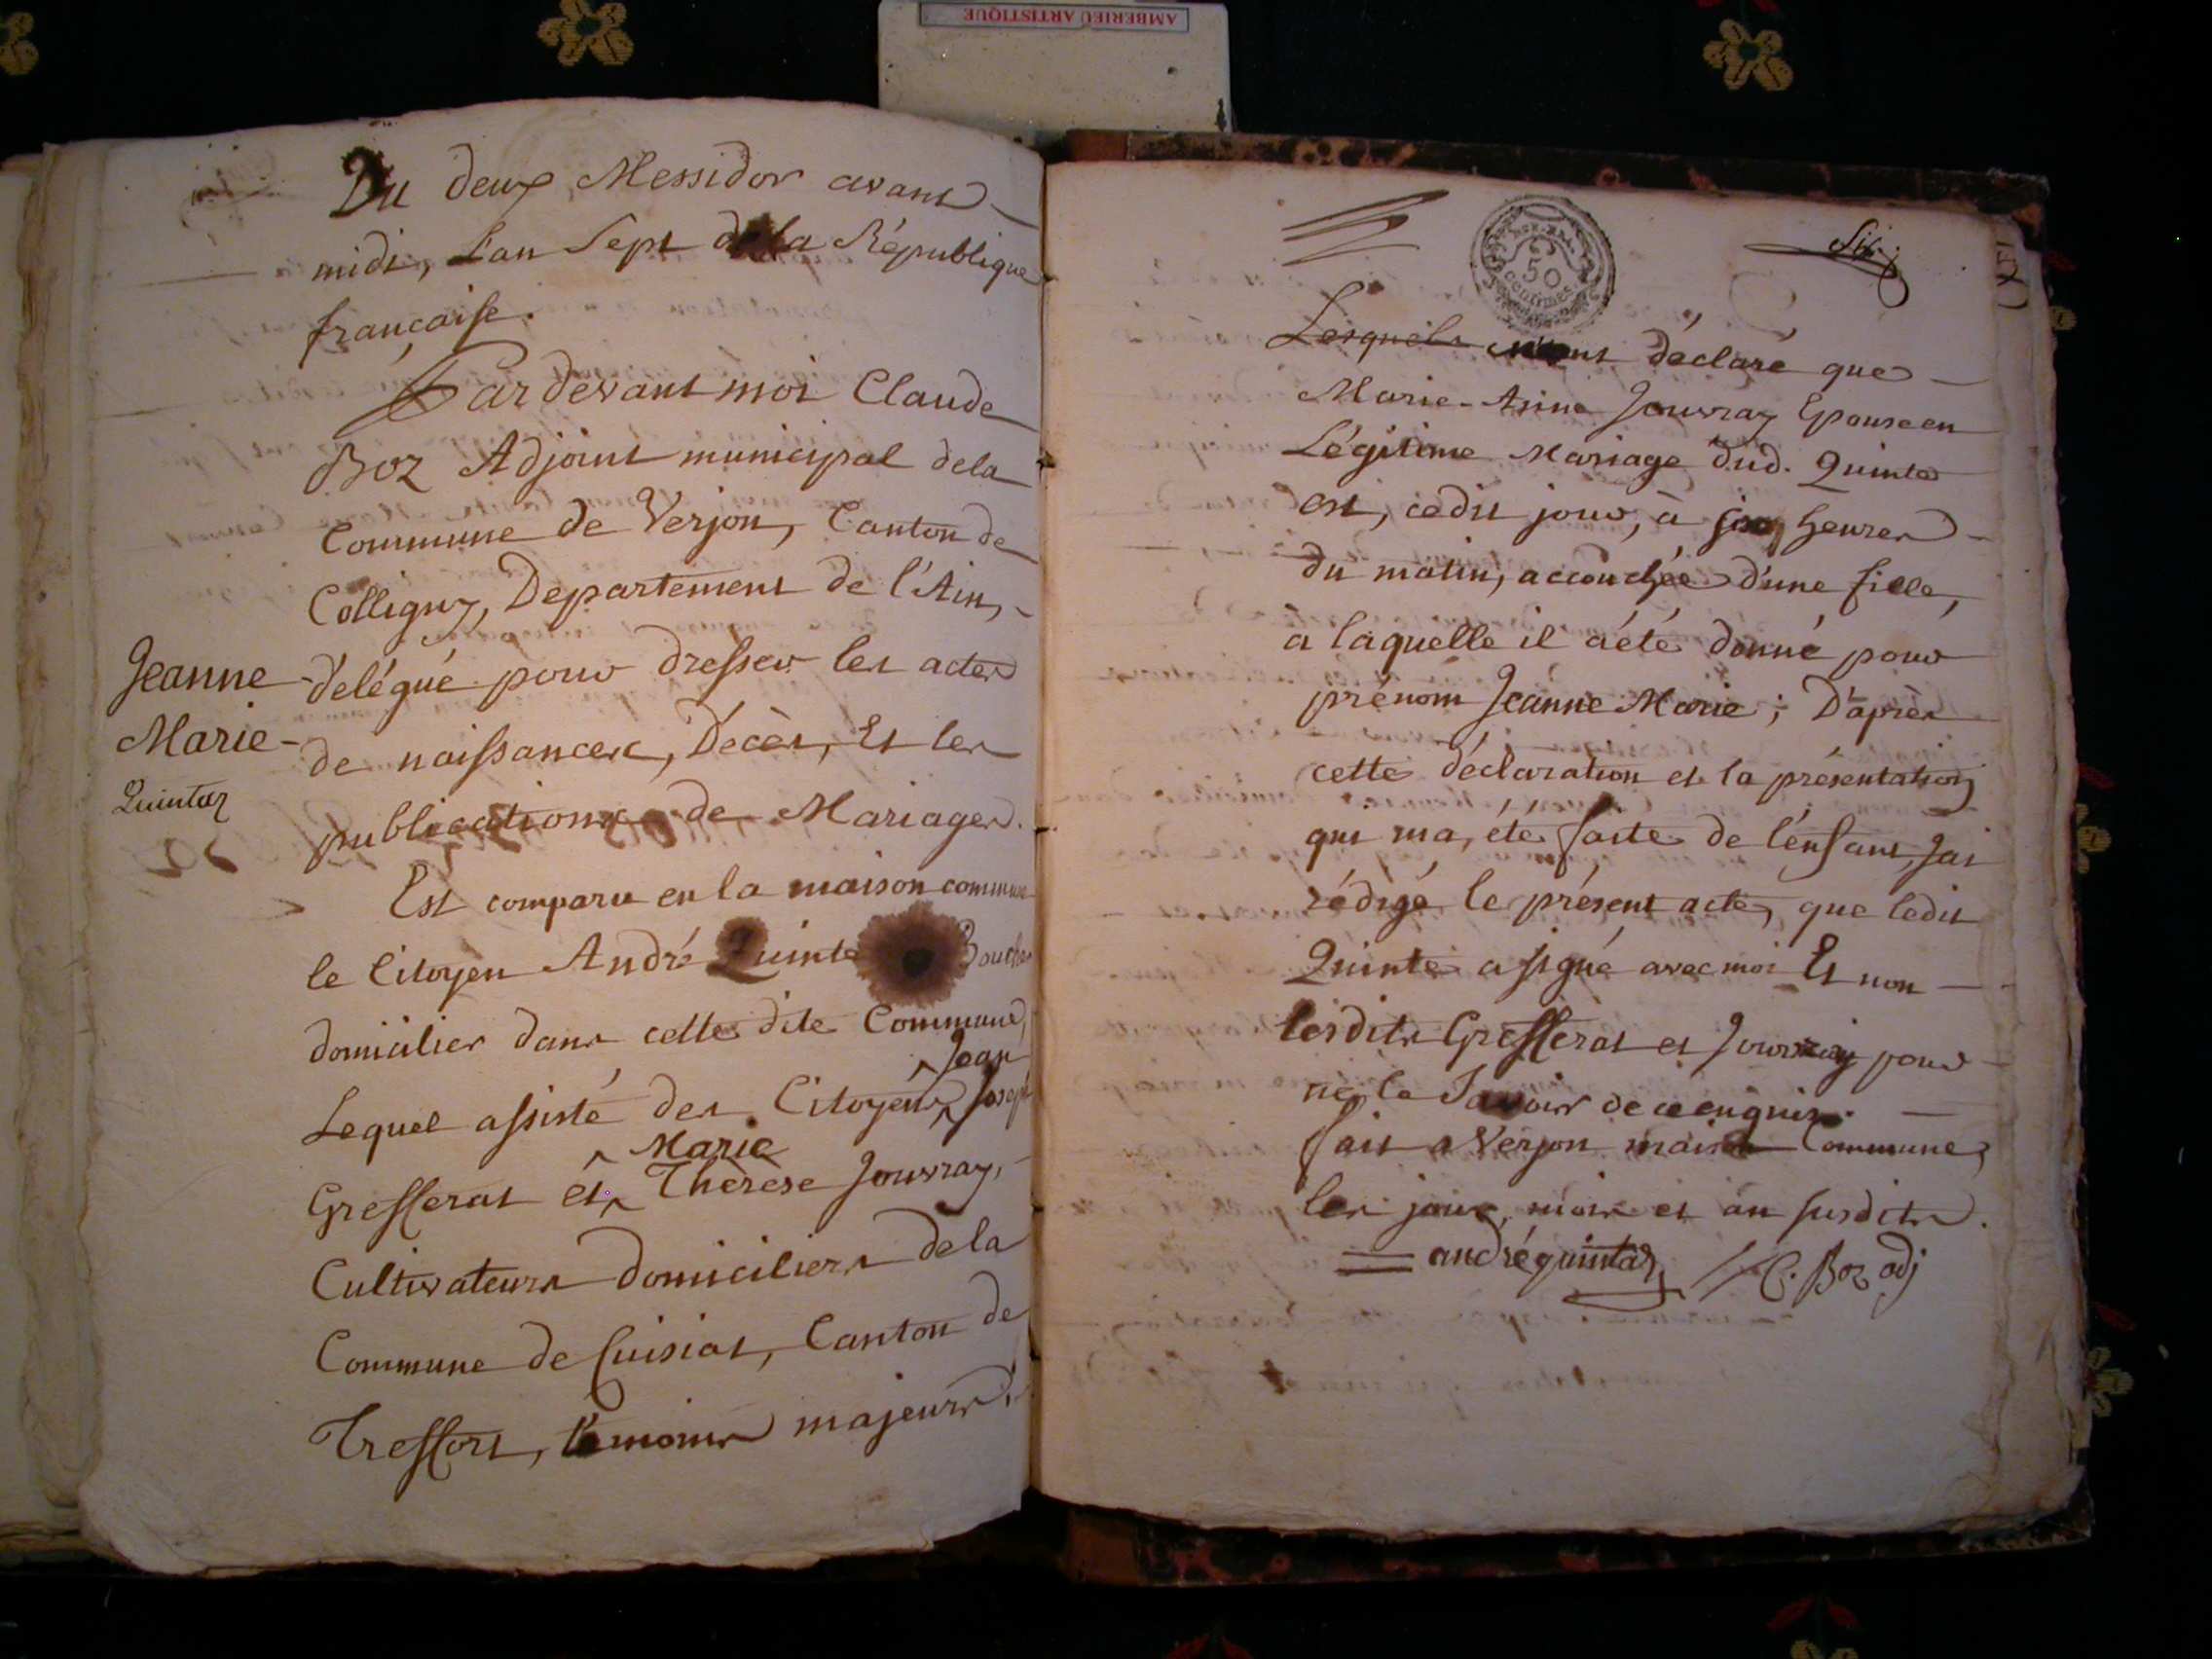 AMBERIEU ARTISTIQUE
Du deux Messidor avant
midi, L'an Sept de la République
française.
Pardevant moi Claude
Boz Adjoint municipal dela
Commune de Verjon, Canton de
Colligny, Departement de l'Ain,
Jeanne
Marie
Quintaz
délégué pour dresser les actes
de naissances, Décès, Et les
publications de Mariages.
Est comparu en la maison commune
le Citoyen André Quinte Boucher
domicilier dans cette dite Commune,
Jean
Lequel assisté des Citoyens Joseph
Marie
Gresserat et Thérèse Jouvray,
Cultivateurs domiciliers dela
Commune de Cuisiat, Canton de
Treffort, témoins majeurs,
50
centimes
Six
Lesquels m'ont déclaré que
Marie-Anne Jouvray Epouse en
Légitime Mariage dud. Quinte
est, cedit jour, à six heures
du matin, accouchée d'une fille,
a laquelle il a été donné pour
prénom Jeanne Marie; D'après
cette déclaration et la présentation
qui m'a, été faite de l'enfant, J'ai
rédigé le présent acte, que ledit
Quinte a signé avec moi Et non
lesdits Gresserat et Jouvray pour
ne le Savoir de ce enquis.
fait a Verjon maison Commune,
les jour, mois et an susdits.
andré quintaz C. Boz adj